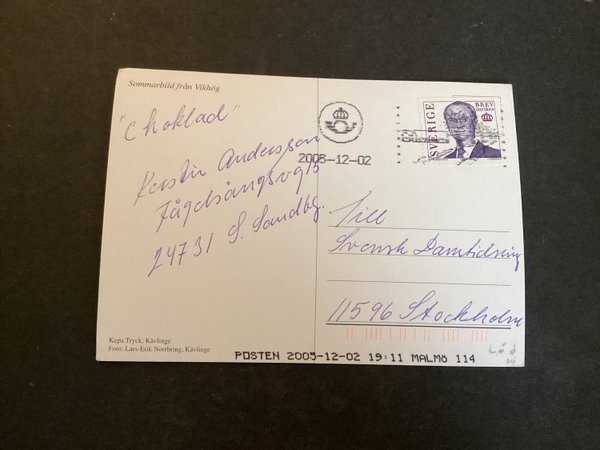 Sommarbild från Vikhög
"Choklad"
Kerstin Andersson
Fågelsångsvg 15
24731 S. Sandby.
SVERIGE
BREV
inrikes
2005-12-02
Till
Svensk Damtidning
11596 Stockholm
Kepa Tryck, Kävlinge
Foto: Lars-Erik Norrbring, Kävlinge
POSTEN 2005-12-02 19:11 MALMÖ 114